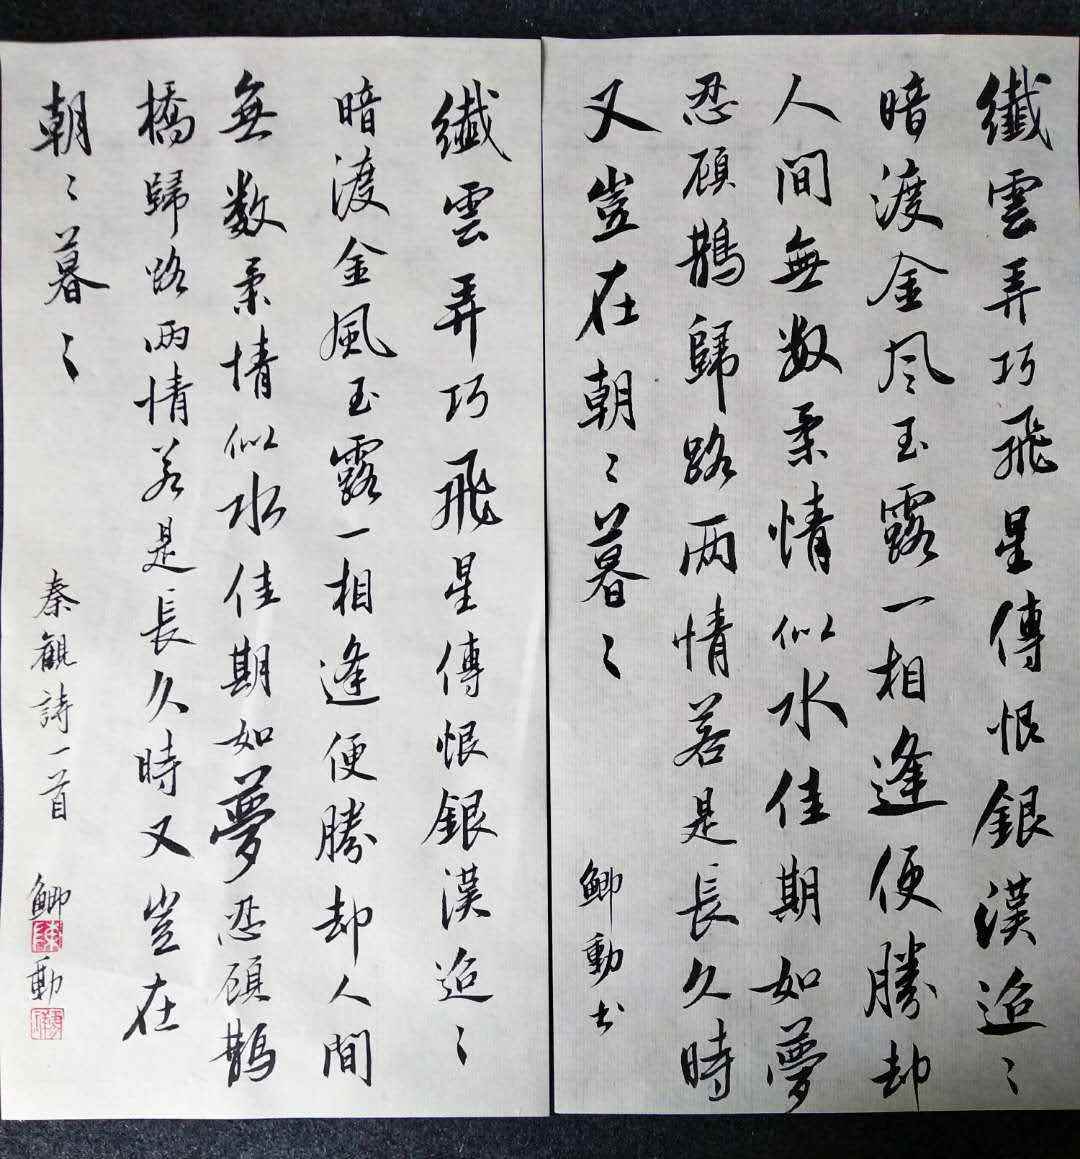 纖雲弄巧飛星傳恨銀漢迢〻
暗渡金风玉露一相逢便勝却
人間無数柔情似水佳期如夢
忍顧鵲歸路两情若是長久時
又豈在朝〻暮〻
鯽動书
纖雲弄巧飛星傳恨銀漢迢〻
暗渡金風玉露一相逢便勝却人間
無数柔情似水佳期如夢忍顧鵲
橋歸路两情若是長久時又豈在
朝〻暮〻
秦觀詩一首 鯽動